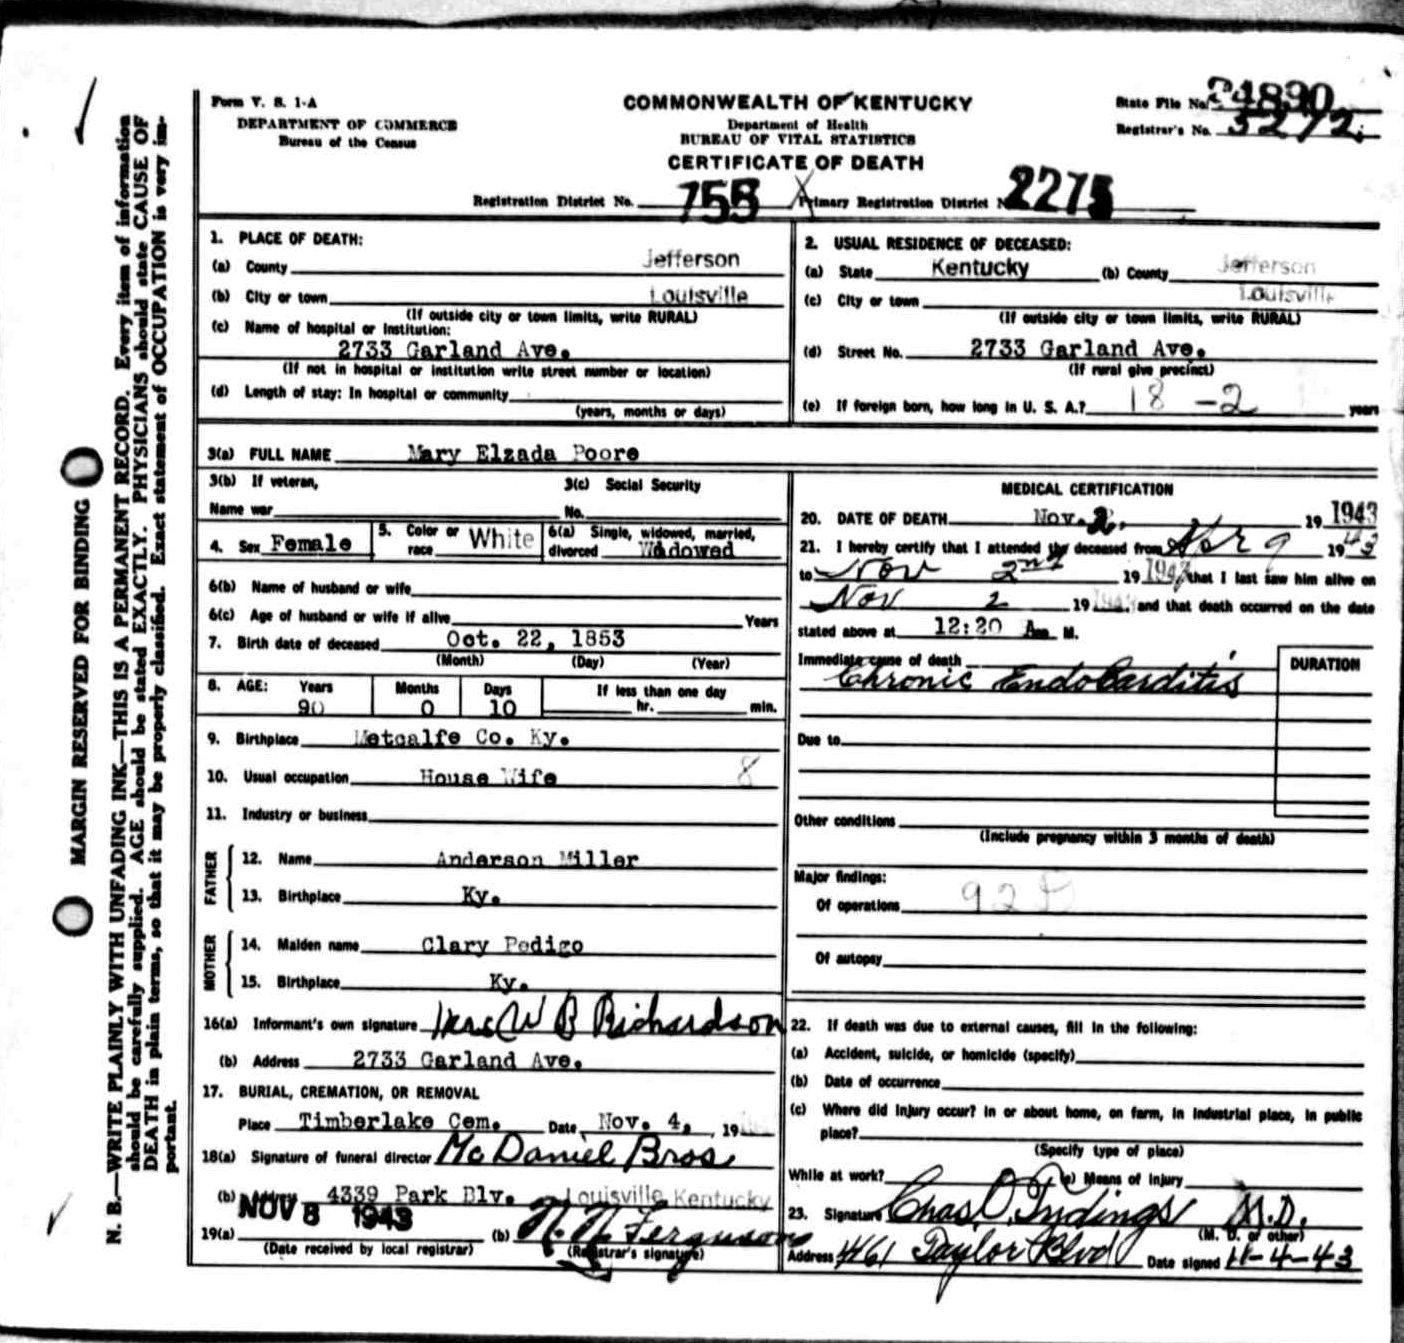 Form V. S. 1-A
DEPARTMENT OF COMMERCE
Bureau of the Census
COMMONWEALTH OF KENTUCKY
Department of Health
BUREAU OF VITAL STATISTICS
CERTIFICATE OF DEATH
State File No. 24890
Registrar's No. 5272
Registration District No. 755 Primary Registration District N 2275
MARGIN RESERVED FOR BINDING
N. B.—WRITE PLAINLY WITH UNFADING INK—THIS IS A PERMANENT RECORD. Every item of information
should be carefully supplied. AGE should be stated EXACTLY. PHYSICIANS should state CAUSE OF
DEATH in plain terms, so that it may be properly classified. Exact statement of OCCUPATION is very im-
portant.
1. PLACE OF DEATH:
(a) County Jefferson
(b) City or town Louisville
(If outside city or town limits, write RURAL)
(c) Name of hospital or institution:
2733 Garland Ave.
(If not in hospital or institution write street number or location)
(d) Length of stay: In hospital or community
(years, months or days)
2. USUAL RESIDENCE OF DECEASED:
(a) State Kentucky (b) County Jefferson
(c) City or town Louisville
(If outside city or town limits, write RURAL)
(d) Street No. 2733 Garland Ave.
(If rural give precinct)
(e) If foreign born, how long in U. S. A.? 18 -2 years
3(a) FULL NAME Mary Elzada Poore
3(b) If veteran,
Name war
3(c) Social Security
No.
4. Sex Female 5. Color or race White 6(a) Single, widowed, married, divorced Widowed
6(b) Name of husband or wife
6(c) Age of husband or wife if alive Years
7. Birth date of deceased Oct. 22, 1853
(Month) (Day) (Year)
8. AGE: Years Months Days If less than one day
90 0 10 hr. min.
9. Birthplace Metcalfe Co. Ky.
10. Usual occupation House Wife 8
11. Industry or business
FATHER
12. Name Anderson Miller
13. Birthplace Ky.
MOTHER
14. Maiden name Clary Pedigo
15. Birthplace Ky.
16(a) Informant's own signature Mrs W B Richardson
(b) Address 2733 Garland Ave.
17. BURIAL, CREMATION, OR REMOVAL
Place Timberlake Cem. Date Nov. 4, 19
18(a) Signature of funeral director McDaniel Bros
(b) 4339 Park Blv. Louisville Kentucky
NOV 8 1943
19(a) (b) N. N. Ferguson
(Date received by local registrar) (Registrar's signature)
MEDICAL CERTIFICATION
20. DATE OF DEATH Nov. 2, 19 1943
21. I hereby certify that I attended the deceased from Apr 9 19 43
to Nov 2nd 19 1943 that I last saw him alive on
Nov 2 19 1943 and that death occurred on the date
stated above at 12:20 A M.
Immediate cause of death DURATION
Chronic Endocarditis
Due to
Other conditions
(Include pregnancy within 3 months of death)
Major findings:
Of operations 92
Of autopsy
22. If death was due to external causes, fill in the following:
(a) Accident, suicide, or homicide (specify)
(b) Date of occurrence
(c) Where did injury occur? In or about home, on farm, in industrial place, in public
place?
(Specify type of place)
While at work? (e) Means of injury
23. Signature Chas. O. M.D.
(M. D. or other)
Address 4461 Taylor Blvd Date signed 11-4-43